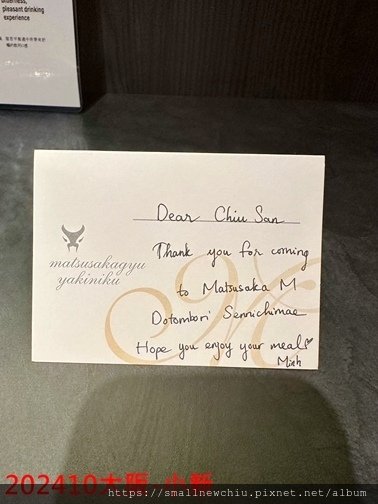 bitterness,
pleasant drinking
experience
Dear Chiu San
matsusakagyu
yakiniku
Thank you for coming
to Matsusaka M
Dotombori Sennichimae
Hope you enjoy your meal♡
Minh
202410大阪
https://smallnewchiu.pixnet.net/album